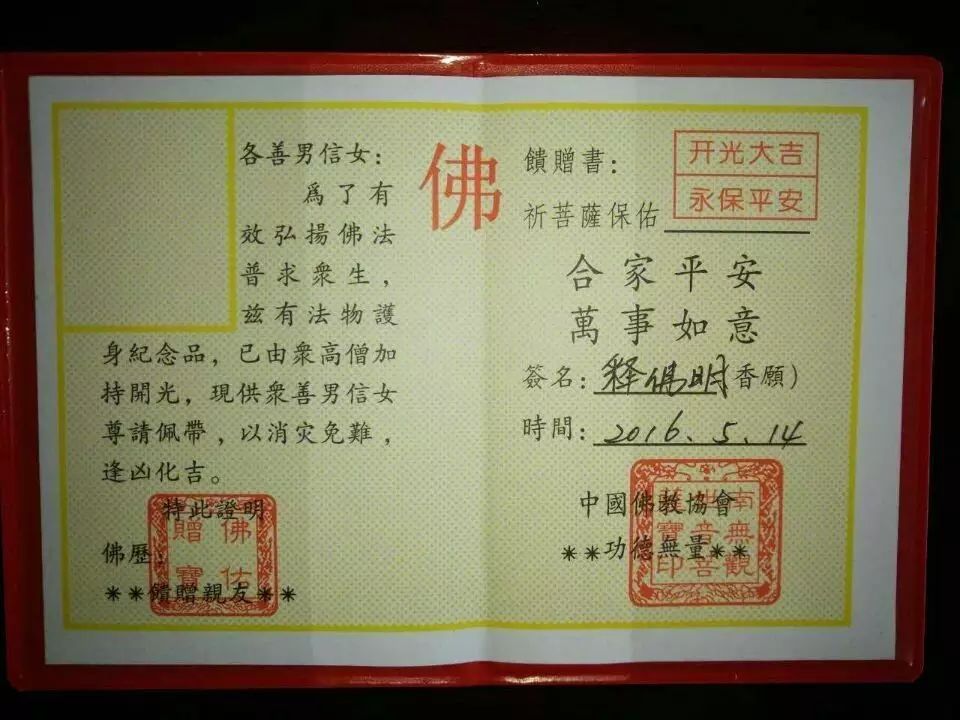 各善男信女：
爲了有
效弘揚佛法
普求衆生，
兹有法物護
身紀念品，已由衆高僧加
持開光，現供衆善男信女
尊請佩帶，以消灾免難，
逢凶化吉。
特此證明
佛歷：
**饋贈親友**
佛佑
贈寶
佛
饋贈書：
开光大吉
永保平安
祈菩薩保佑
合家平安
萬事如意
簽名：释佛明(香願)
時間：2016.5.14
中國佛教協會
**功德無量**
南無觀
世音菩
薩寶印